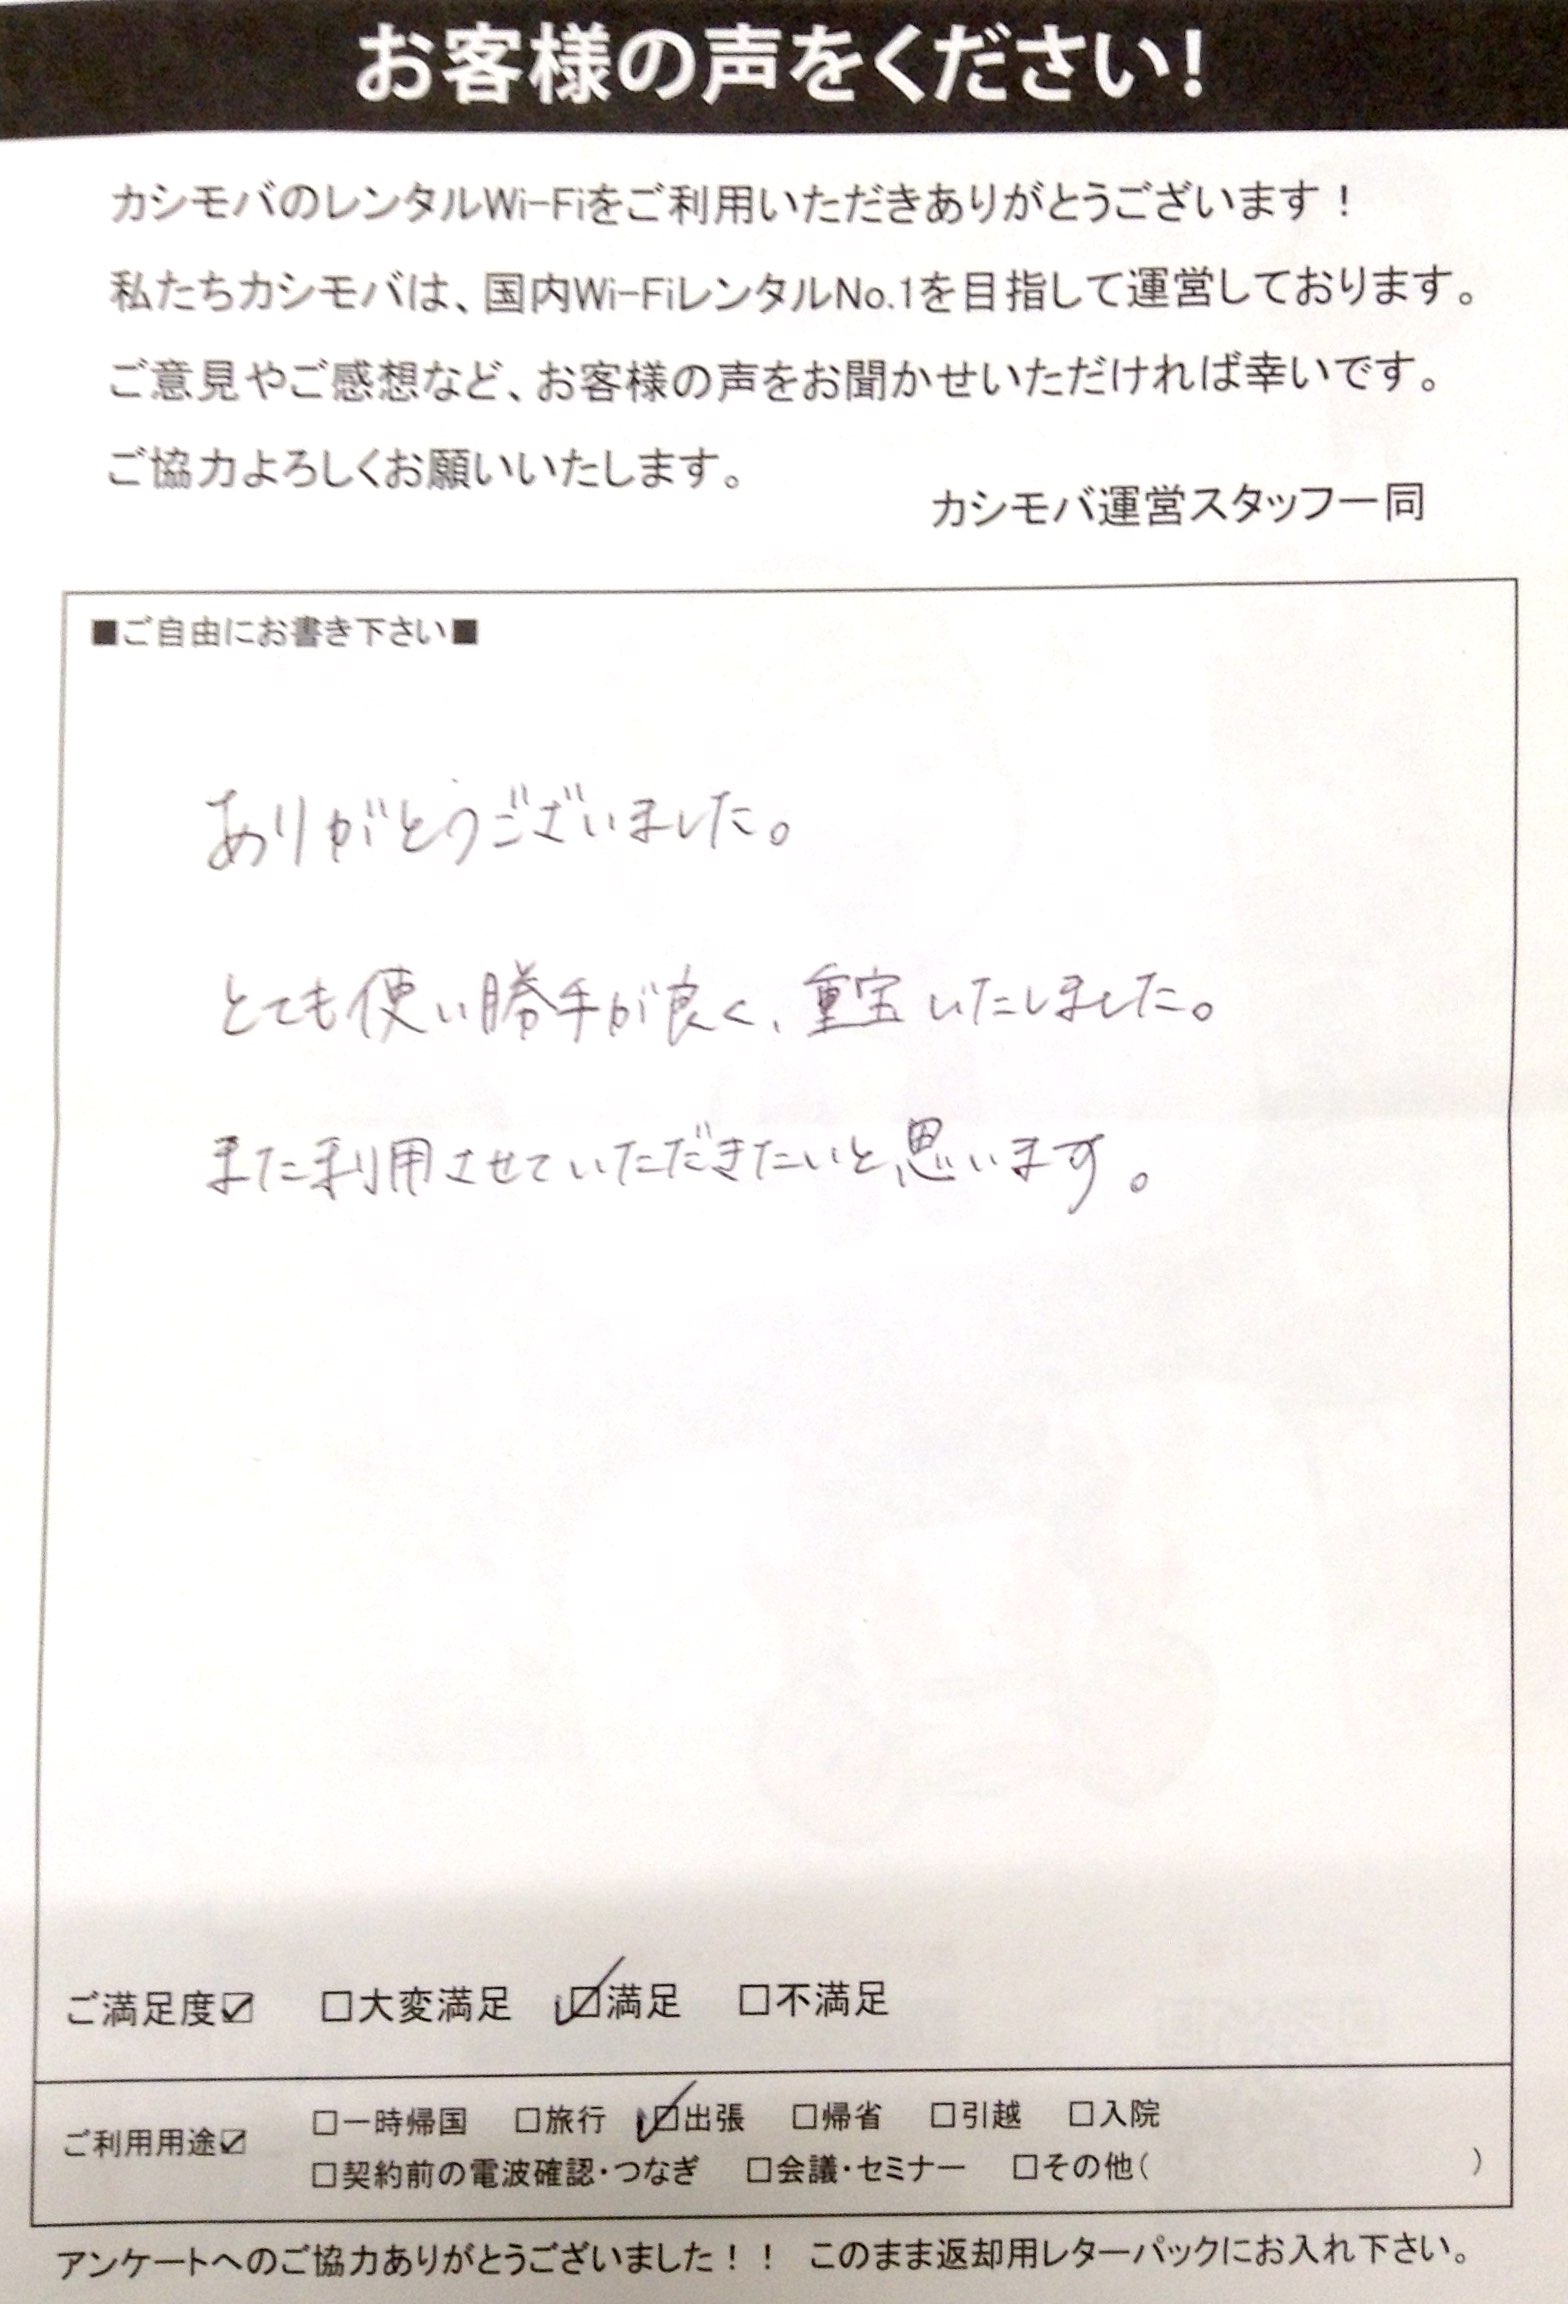 お客様の声をください！
カシモバのレンタルWi-Fiをご利用いただきありがとうございます！
私たちカシモバは、国内Wi-FiレンタルNo.1を目指して運営しております。
ご意見やご感想など、お客様の声をお聞かせいただければ幸いです。
ご協力よろしくお願いいたします。
カシモバ運営スタッフ一同
■ご自由にお書き下さい■
ありがとうございました。
とても使い勝手が良く、重宝いたしました。
また利用させていただきたいと思います。
ご満足度☑ □大変満足 ☑満足 □不満足
ご利用用途☑ □一時帰国 □旅行 ☑出張 □帰省 □引越 □入院
□契約前の電波確認・つなぎ □会議・セミナー □その他（ ）
アンケートへのご協力ありがとうございました！！ このまま返却用レターパックにお入れ下さい。